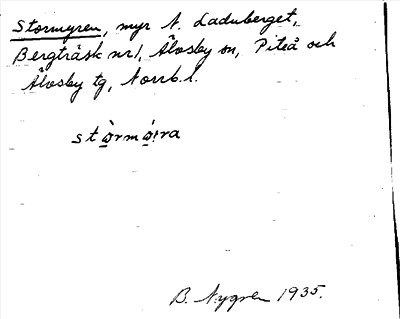 Stormyren, myr N. Laduberget,
Bergträsk nr 1, Älvsby sn, Piteå och
Älvsby tg, Norrb. l.
stὼrmώra
B. Nygren 1935.